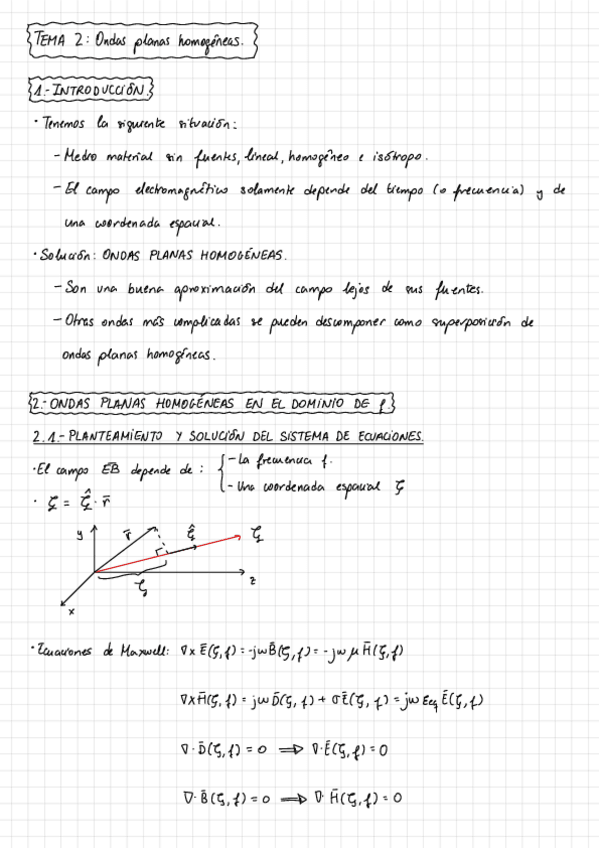 TEMA 2: Ondas planas homogéneas.
1.- INTRODUCCIÓN.
· Tenemos la siguiente situación:
- Medio material sin fuentes, lineal, homogéneo e isótropo.
- El campo electromagnético solamente depende del tiempo (o frecuencia) y de
una coordenada espacial.
· Solución: ONDAS PLANAS HOMOGÉNEAS.
- Son una buena aproximación del campo lejos de sus fuentes.
- Otras ondas más complicadas se pueden descomponer como superposición de
ondas planas homogéneas.
2.- ONDAS PLANAS HOMOGÉNEAS EN EL DOMINIO DE f.
2.1.- PLANTEAMIENTO Y SOLUCIÓN DEL SISTEMA DE ECUACIONES.
· El campo EB depende de: { - La frecuencia f.
- Una coordenada espacial ζ
· ζ = ζ̂ · r̄
y r̄ ζ̂ ζ
z
ζ
x
· Ecuaciones de Maxwell: ∇x Ē(ζ,f) = -jω B̄(ζ,f) = -jω μ H̄(ζ,f)
∇x H̄(ζ,f) = jω D̄(ζ,f) + σĒ(ζ,f) = jω εeq Ē(ζ,f)
∇· D̄(ζ,f) = 0 ⟹ ∇· Ē(ζ,f) = 0
∇· B̄(ζ,f) = 0 ⟹ ∇· H̄(ζ,f) = 0